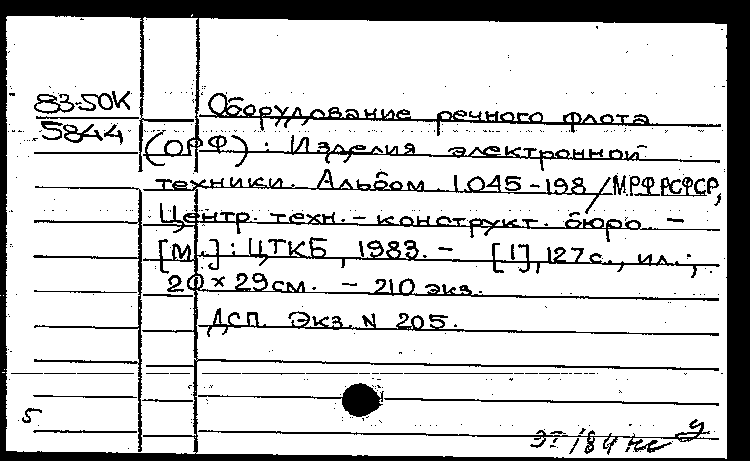 83-50К
5844
Оборудование речного флота
(ОРФ): Изделия электронной
техники. Альбом 1.045-198/МРФ РСФСР,
Центр. техн.-конструкт. бюро. -
[М.]: ЦТКБ, 1983. - [1], 127 с., ил.;
20 × 29 см. - 210 экз.
ДСП. Экз. N 205.
5